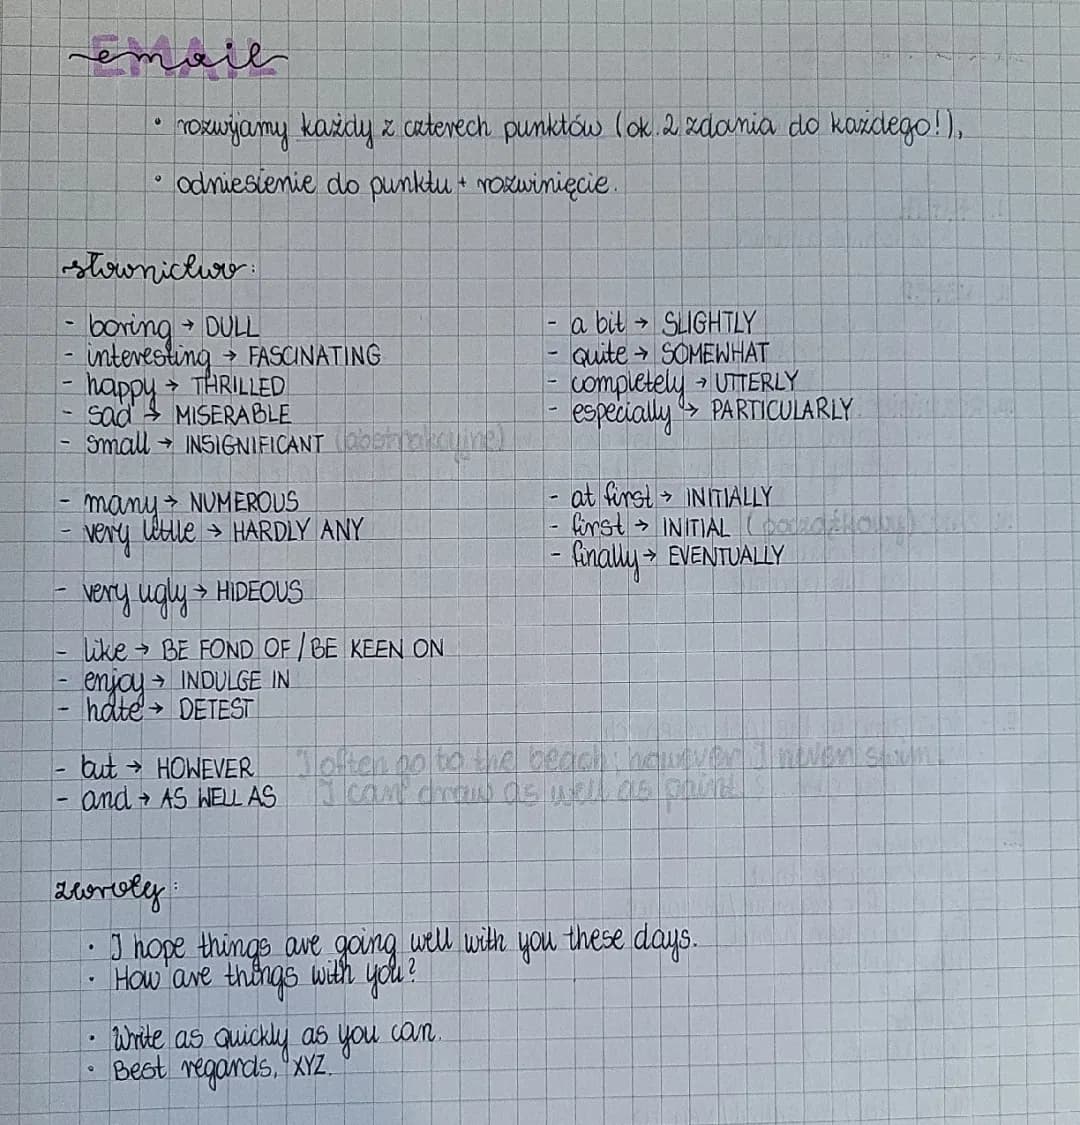 EMAIL
email
• rozwijamy każdy z czterech punktów (ok. 2 zdania do każdego!),
• odniesienie do punktu + rozwinięcie.
słownictwo:
- boring → DULL
- interesting → FASCINATING
- happy → THRILLED
- sad → MISERABLE
- small → INSIGNIFICANT (abstrakcyjne)
- many → NUMEROUS
- very little → HARDLY ANY
- very ugly → HIDEOUS
- like → BE FOND OF / BE KEEN ON
- enjoy → INDULGE IN
- hate → DETEST
- but → HOWEVER I often go to the beach; however I never swim.
- and → AS WELL AS I can draw as well as paint.
- a bit → SLIGHTLY
- quite → SOMEWHAT
- completely → UTTERLY
- especially → PARTICULARLY
- at first → INITIALLY
- first → INITIAL (początkowy)
- finally → EVENTUALLY
zwroty:
• I hope things are going well with you these days.
• How are things with you?
• Write as quickly as you can.
• Best regards, XYZ.